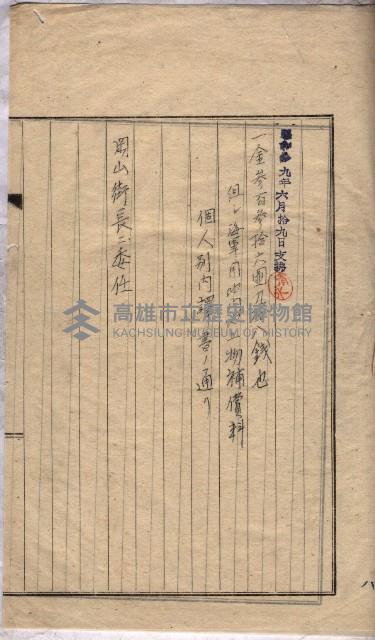 昭和拾九年六月拾九日支拂
一金參百參拾六圓九 錢也
但シ海軍用地 物補償料
個人別內譯書ノ通リ
岡山街長ニ委任
高雄市立歷史博物館
KAOHSIUNG MUSEUM OF HISTORY
八